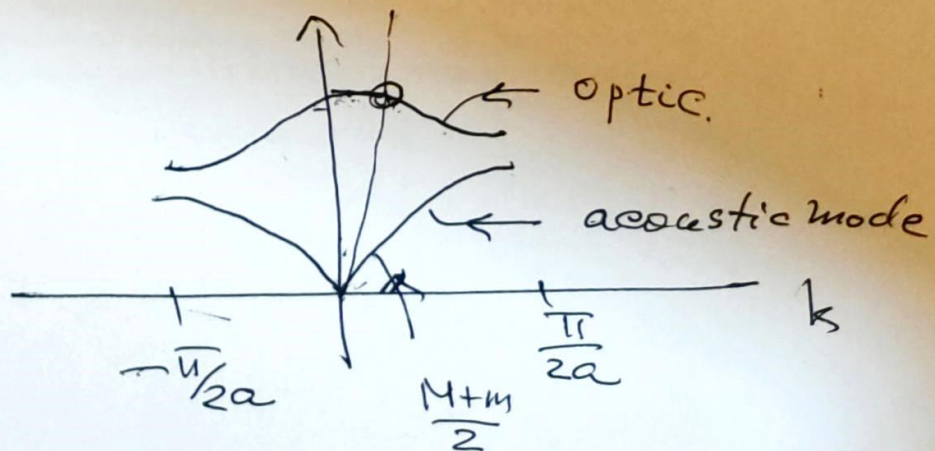 optic.
acoustic mode
k
-π/2a
π/2a
M+m/2